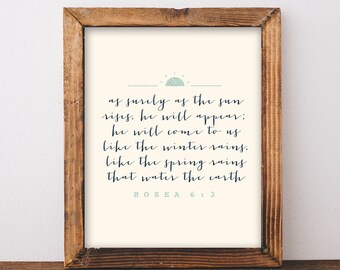 as surely as the sun
rises, he will appear;
he will come to us
like the winter rains,
like the spring rains
that water the earth
HOSEA 6:3